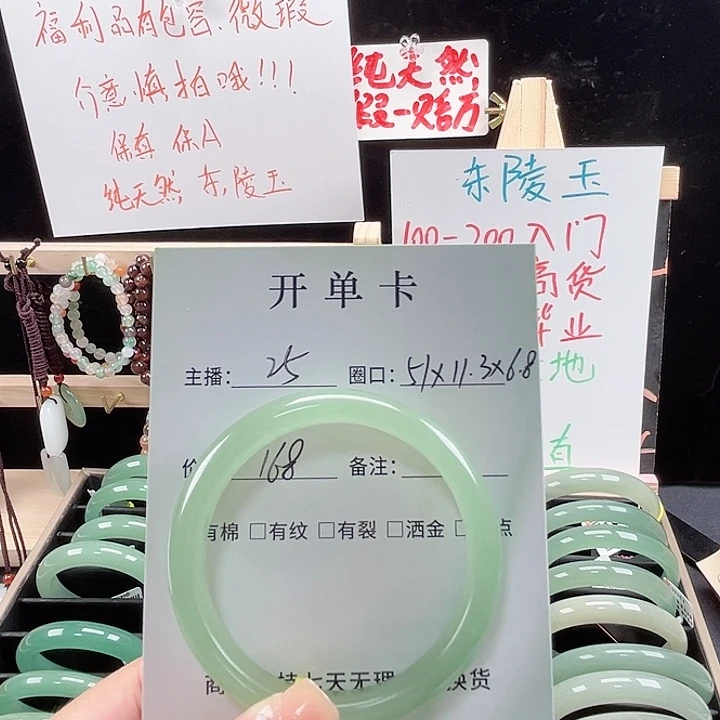 福利品有包容、微瑕
介意慎拍哦!!!
保真 保A
纯天然 东陵玉
纯天然,
假一赔万
东陵玉
100-200入门
高货
毕业
地
真
开单卡
主播: 25 圈口: 51×11.3×6.8
价 168 备注:
有棉 □有纹 □有裂 □洒金 □ 点
商 持七天无理 换货